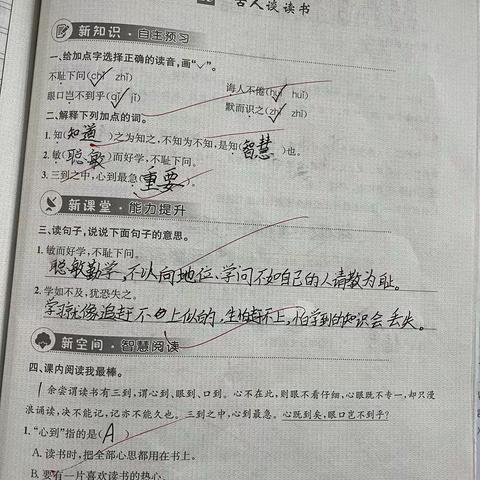 古人谈读书
新知识·自主预习
一、给加点字选择正确的读音,画“✓”。
不耻下问(chǐ zhǐ) 诲人不倦(huǐ huì)
眼口岂不到乎(qǐ jǐ) 默而识之(zhì shí)
二、解释下列加点的词。
1. 知(知道)之为知之,不知为不知,是知(智慧)也。
2. 敏(聪敏)而好学,不耻下问。
3. 三到之中,心到最急(重要)。
新课堂·能力提升
三、读句子,说说下面句子的意思。
1. 敏而好学,不耻下问。
聪敏勤学,不以向地位、学问不如自己的人请教为耻。
2. 学如不及,犹恐失之。
学习就像追赶不上似的,生怕赶不上,怕学到的知识会丢失。
新空间·智慧阅读
四、课内阅读我最棒。
余尝谓读书有三到,谓心到、眼到、口到。心不在此,则眼不看仔细,心眼既不专一,却只漫
浪诵读,决不能记,记亦不能久也。三到之中,心到最急。心既到矣,眼口岂不到乎?
1. “心到”指的是(A)
A. 读书时,把全部心思都用在书上。
B. 要有一片喜欢读书的热心。